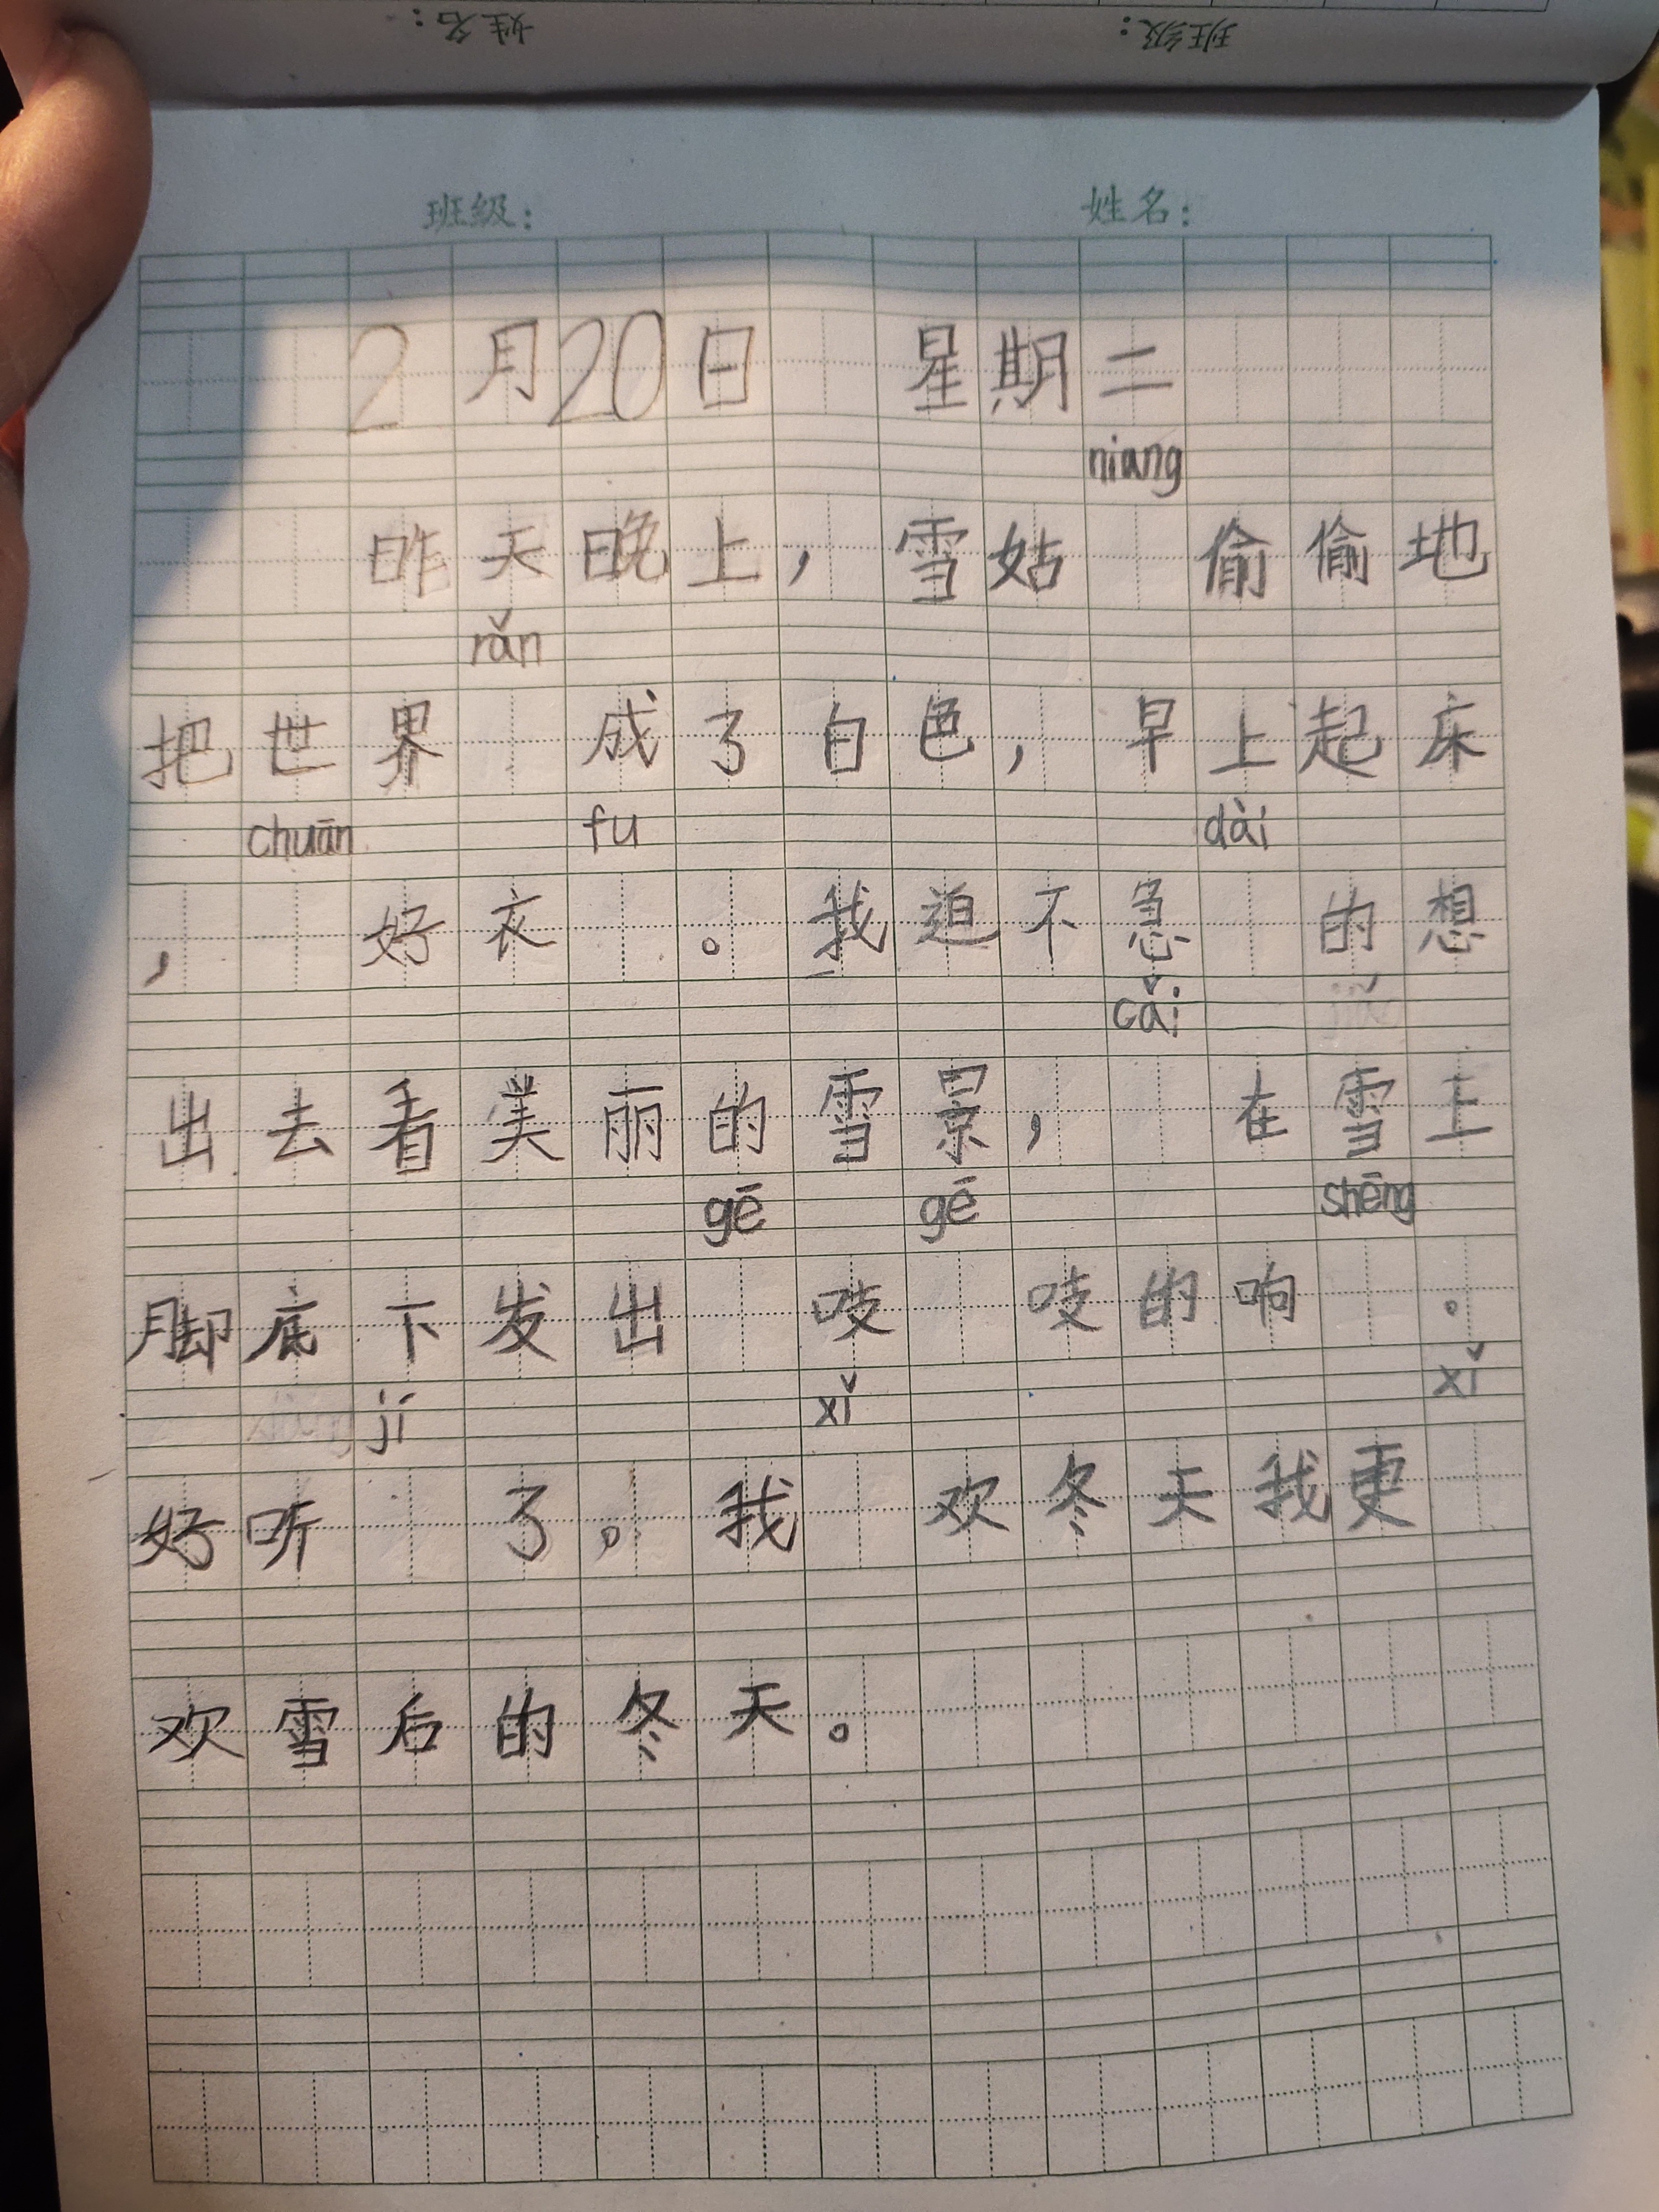 姓名：
班级：
班级： 姓名：
2月20日 星期二
niang
昨天晚上，雪姑 偷偷地
rǎn
把世界 成了白色，早上起床
chuān fu dài
， 好衣 。我迫不急 的想
cǎi
出去看美丽的雪景， 在雪上
gē gē shēng
脚底下发出 吱 吱的响 。
jí xǐ xǐ
好听 了。我 欢冬天我更
欢雪后的冬天。